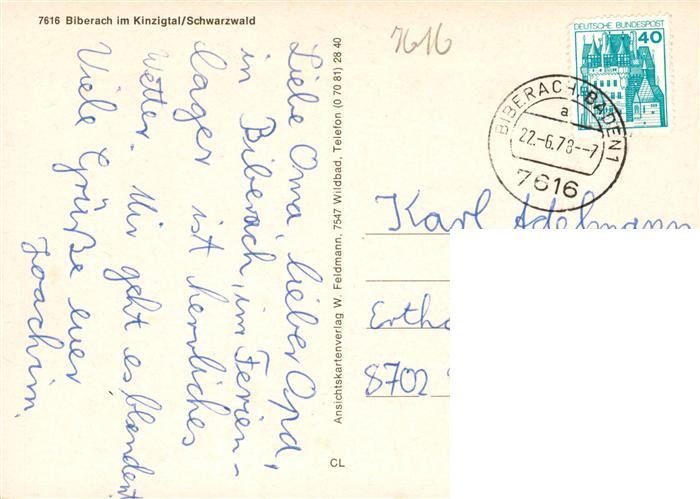 7616 Biberach im Kinzigtal/Schwarzwald
Liebe Oma, lieber Opa,
in Biberach, im Ferien-
lager ist herrliches
Wetter. Mir geht es blendent
Viele Grüße euer
Joachim.
Ansichtskartenverlag W. Feldmann, 7547 Wildbad, Telefon (0 70 81) 28 40
CL
7616
DEUTSCHE BUNDESPOST
40
BIBERACH, BADEN 1
a
22.-6.78--7
7616
Karl Adelmann
Ertha
8702